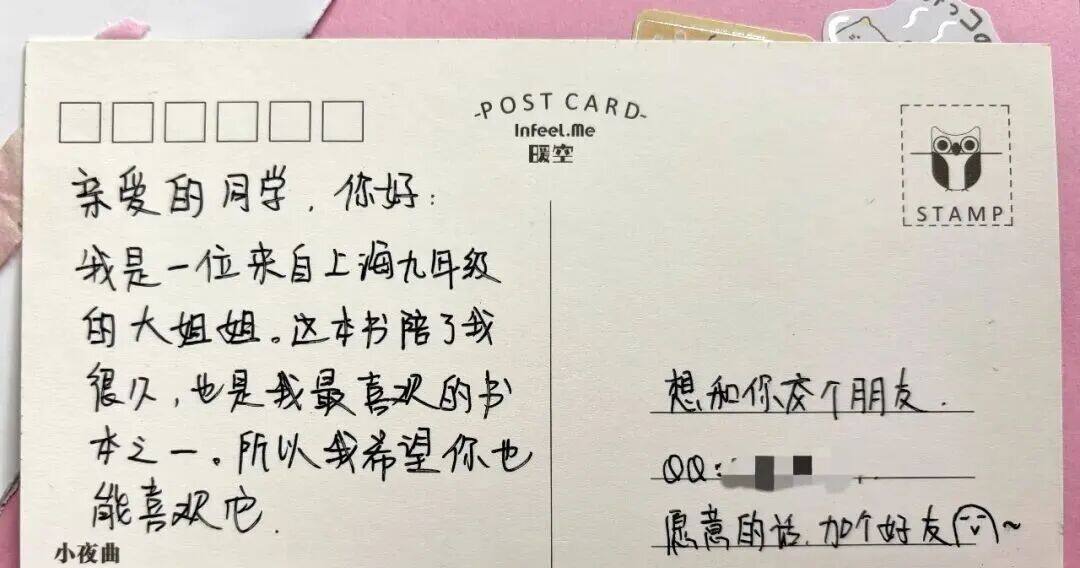 -POST CARD-
InFeeL.Me
暖空
STAMP
亲爱的同学，你好：
我是一位来自上海九年级
的大姐姐。这本书陪了我
很久，也是我最喜欢的书
本之一。所以我希望你也
能喜欢它.
小夜曲
想和你交个朋友.
QQ:
愿意的话,加个好友~